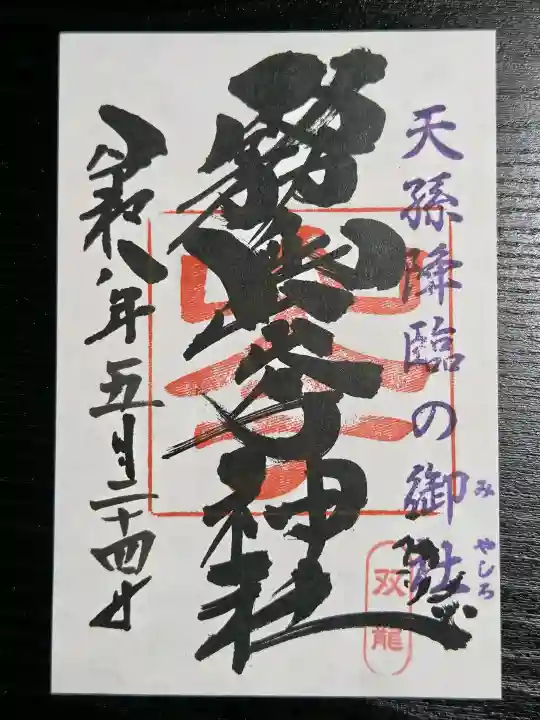 天孫降臨の御社
みやしろ
霧島岑神社
双龍
令和八年五月二十四日